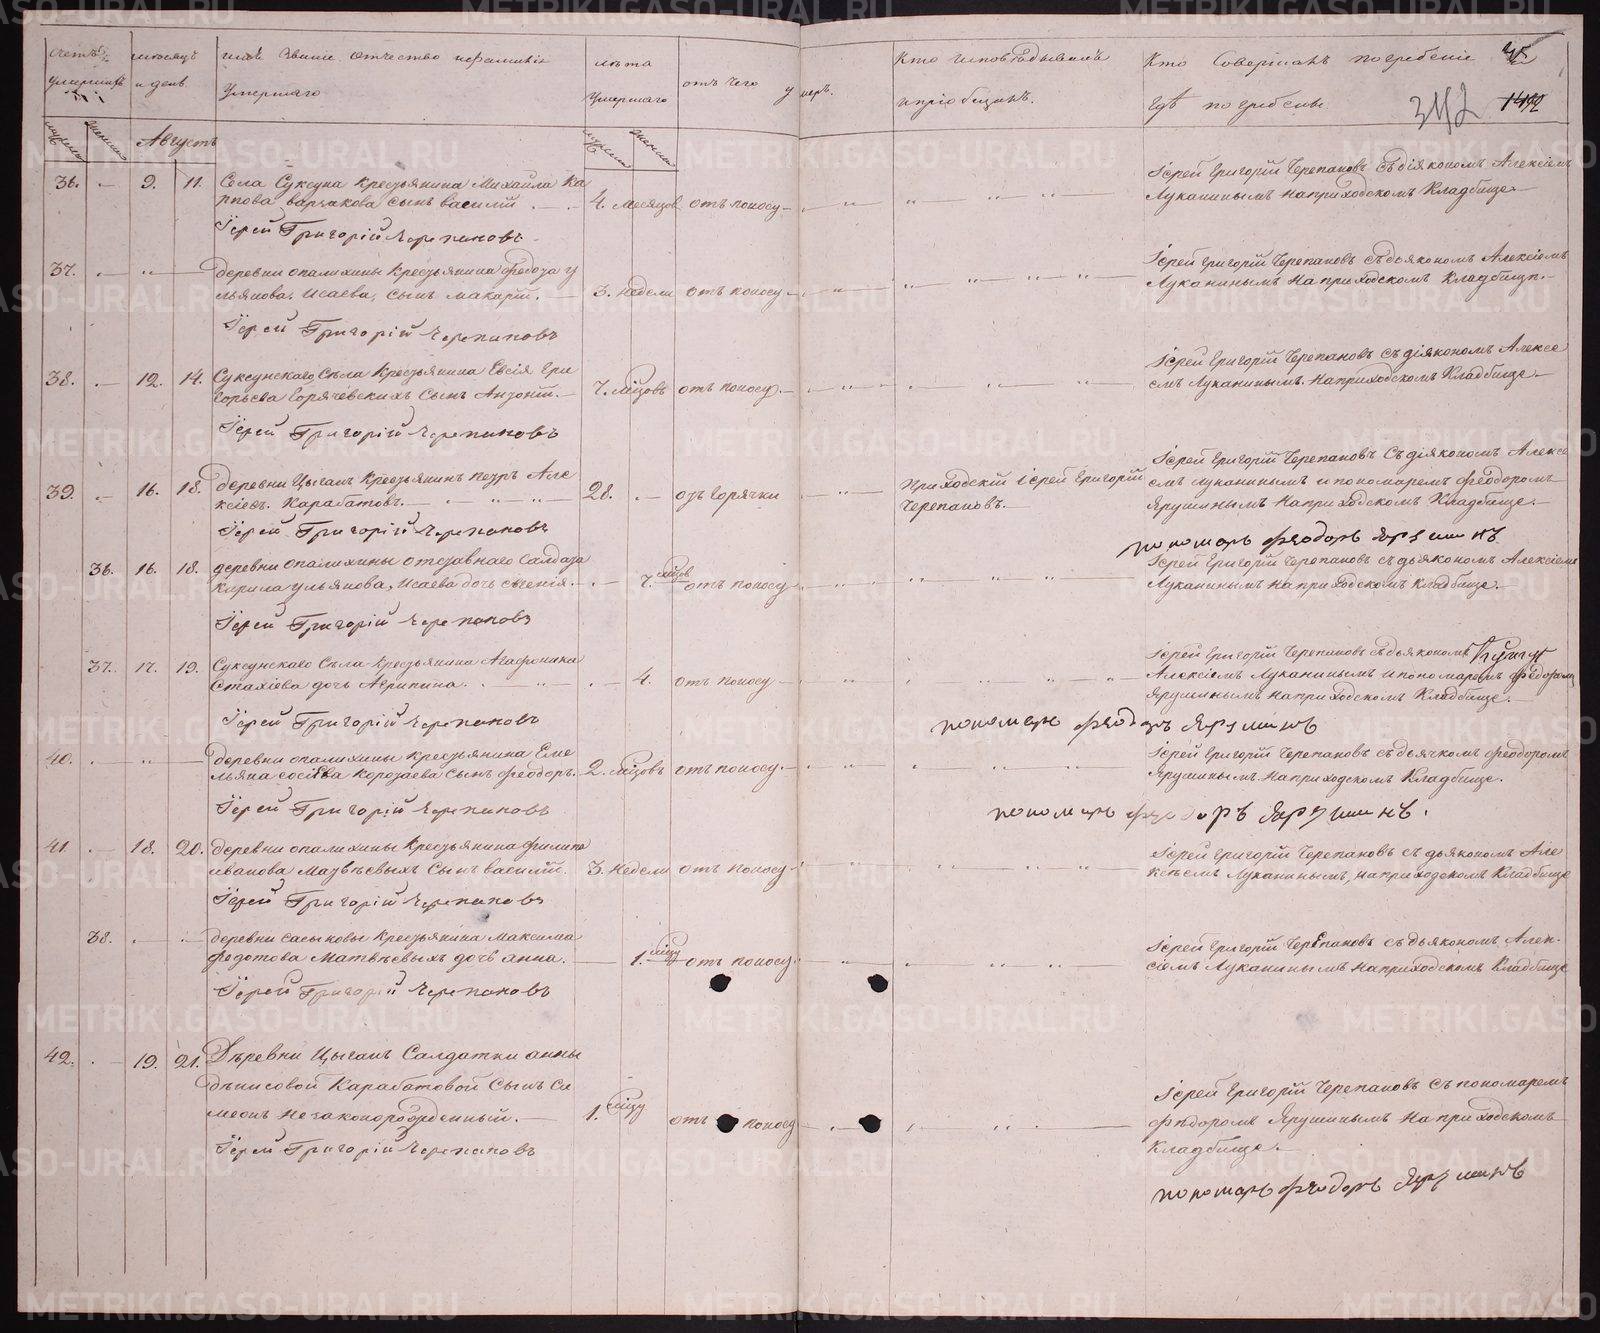 Счетъ умершихъ
мѣсяцъ и день
имя Званіе отчество и фамилія Умершаго
лѣта Умершаго
отъ чего умеръ.
Кто исповѣдывалъ и пріобщилъ.
Кто Совершалъ погребеніе и гдѣ погребены
342
Августъ
36. — 9. 11. Села Суксуна Крестьянина Михаила Ка
рпова Варзакова сынъ Василій — 4. месяцов отъ поносу —
Іерей Григорій Черепановъ Съ діякономъ Алексіемъ
Луканинымъ на приходскомъ Кладбище —
Іерей Григорій Черепановъ
37. — „ — деревни опалихины Крестьянина Федота у
льянова, Исаева, сынъ Макарій. — 3. недели отъ поносу —
Іерей Григорій Черепановъ Съ дьякономъ Алексіемъ
Луканинымъ на приходскомъ Кладбищп. —
Іерей Григорій Черепановъ
38. — 12. 14. Суксунскаго Села Крестьянина Евсія Гри
горьева Горячевскихъ Сынъ Антоній. — 7. мѣцовъ отъ поносу. —
Іерей Григорій Черепановъ Съ діякономъ Алексе
емъ Луканинымъ. на приходскомъ Кладбище —
Іерей Григорій Черепановъ
39. — 16. 18. деревни Цыганъ Крестьянинъ Петръ Але
ксіевъ. Карабатовъ. — 28. — отъ горячки
Приходскій іерей Григорій
Черепановъ. —
Іерей Григорій Черепановъ Съ діякономъ Алексе
емъ Луканинымъ и пономаремъ Феодоромъ
Ярушинымъ на приходскомъ Кладбище. —
Іерей Григорій Черепановъ
пономарь Феодоръ Ярушинъ
36. 16. 18. деревни опалихины отставнаго Салдата
Кирила ульянова, Исаева дочь Евгенія. — 7. мѣцов отъ поносу
Іерей Григорій Черепановъ Съ дьякономъ Алексіемъ
Луканинымъ на приходскомъ Кладбище. —
Іерей Григорій Черепановъ
37. 17. 19. Суксунскаго Села Крестьянина Агафоника
Стахіева дочь Агрипина. — 4. отъ поносу —
Іерей Григорій Черепановъ Съ дьякономъ
Алексіемъ Луканинымъ и пономаремъ Федоромъ
Ярушинымъ на приходскомъ Кладбище. —
Іерей Григорій Черепановъ
пономарь Феодоръ Ярушинъ
40. — „ — деревни опалихины Крестьянина Еме
льяна Коротаева Сынъ Феодоръ. — 2. мѣцовъ отъ поносу. —
Іерей Григорій Черепановъ Съ дьячкомъ Феодоромъ
Ярушинымъ. на приходскомъ Кладбище.
Іерей Григорій Черепановъ
пономарь Феодоръ Ярушинъ.
41. — 18. 20. деревни опалихины Крестьянина Филипа
иванова Матвѣевыхъ Сынъ Василій. 3. недели отъ поносу
Іерей Григорій Черепановъ Съ дьякономъ Але
ксѣемъ Луканинымъ, на приходскомъ Кладбище
Іерей Григорій Черепановъ
38. — — деревни Сасыковы Крестьянина Максима
Федотова Матвѣевыхъ дочь Анна. — 1. мѣцу отъ поносу.
Іерей Григорій Черепановъ Съ дьякономъ Алек-
сіемъ Луканинымъ на приходскомъ Кладбище
Іерей Григорій Черепановъ
42. — 19. 21. Дѣревни Цыганъ Салдатки анны
дѣнисовой Карабатовой Сынъ Си
меонъ незаконорожденный. — 1. мѣцу отъ поносу
Іерей Григорій Черепановъ Съ пономаремъ
Фѣдоромъ Ярушинымъ на приходскомъ
Кладбище. —
Іерей Григорій Черепановъ
пономарь Феодоръ Ярушинъ
METRIKI.GASO-URAL.RU